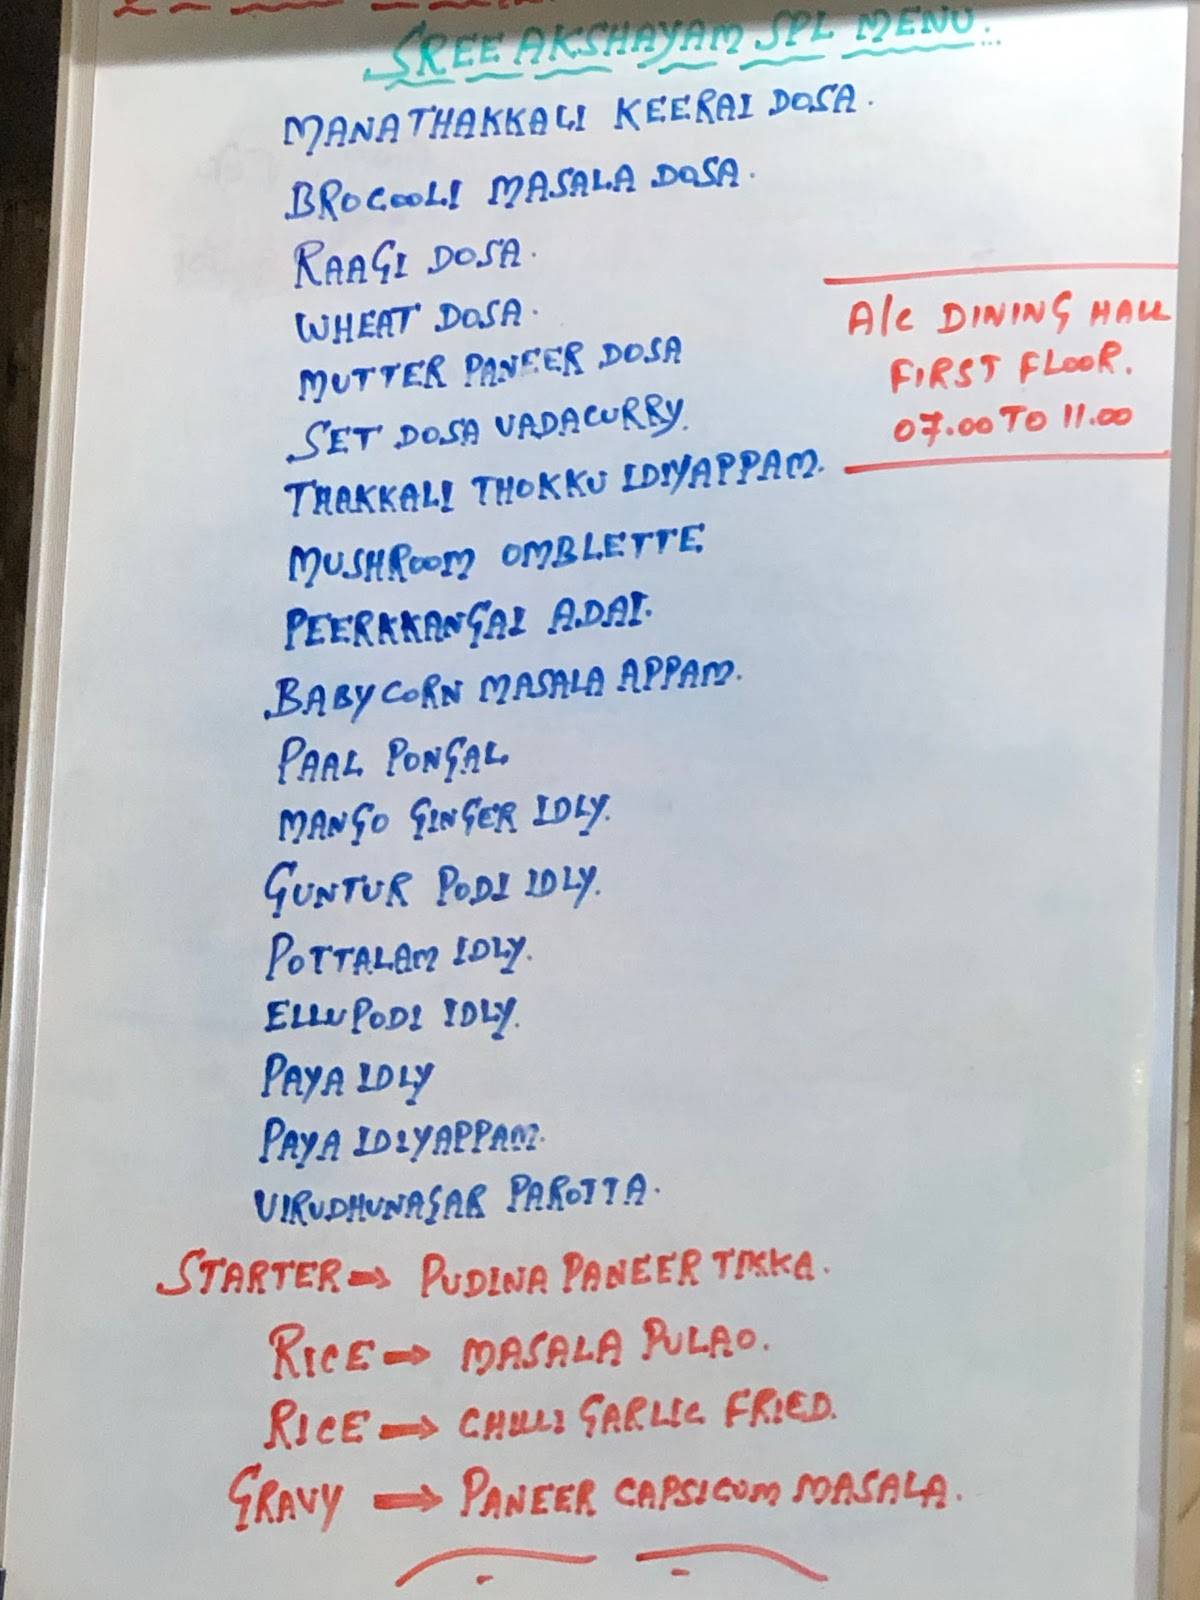 SREE AKSHAYAM SPL MENU...
MANATHAKKALI KEERAI DOSA.
BROCOOLI MASALA DOSA.
RAAGI DOSA.
WHEAT DOSA.
MUTTER PANEER DOSA
SET DOSA VADACURRY.
THAKKALI THOKKU IDIYAPPAM.
MUSHROOM OMBLETTE
PEERKKANGAI ADAI.
BABY CORN MASALA APPAM.
PAAL PONGAL
MANGO GINGER IDLY.
GUNTUR PODI IDLY.
POTTALAM IDLY.
ELLUPODI IDLY.
PAYA IDLY
PAYA IDIYAPPAM.
VIRUDHUNAGAR PAROTTA.
A/C DINING HALL
FIRST FLOOR.
07.00 TO 11.00
STARTER ⇒ PUDINA PANEER TIKKA.
RICE ⇒ MASALA PULAO.
RICE ⇒ CHILLI GARLIC FRIED.
GRAVY ⇒ PANEER CAPSICUM MASALA.